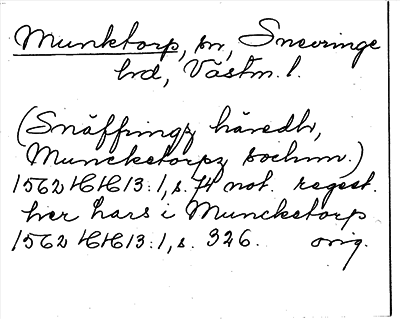 Munktorp, sn, Snevringe
hd, Västm. l.
(Snäffringz häredh,
Muncketorpz sochnn.)
1562 HH 13:1, s. 74 not. regest.
her hars i Muncketorp
1562 HH 13:1, s. 326. orig.